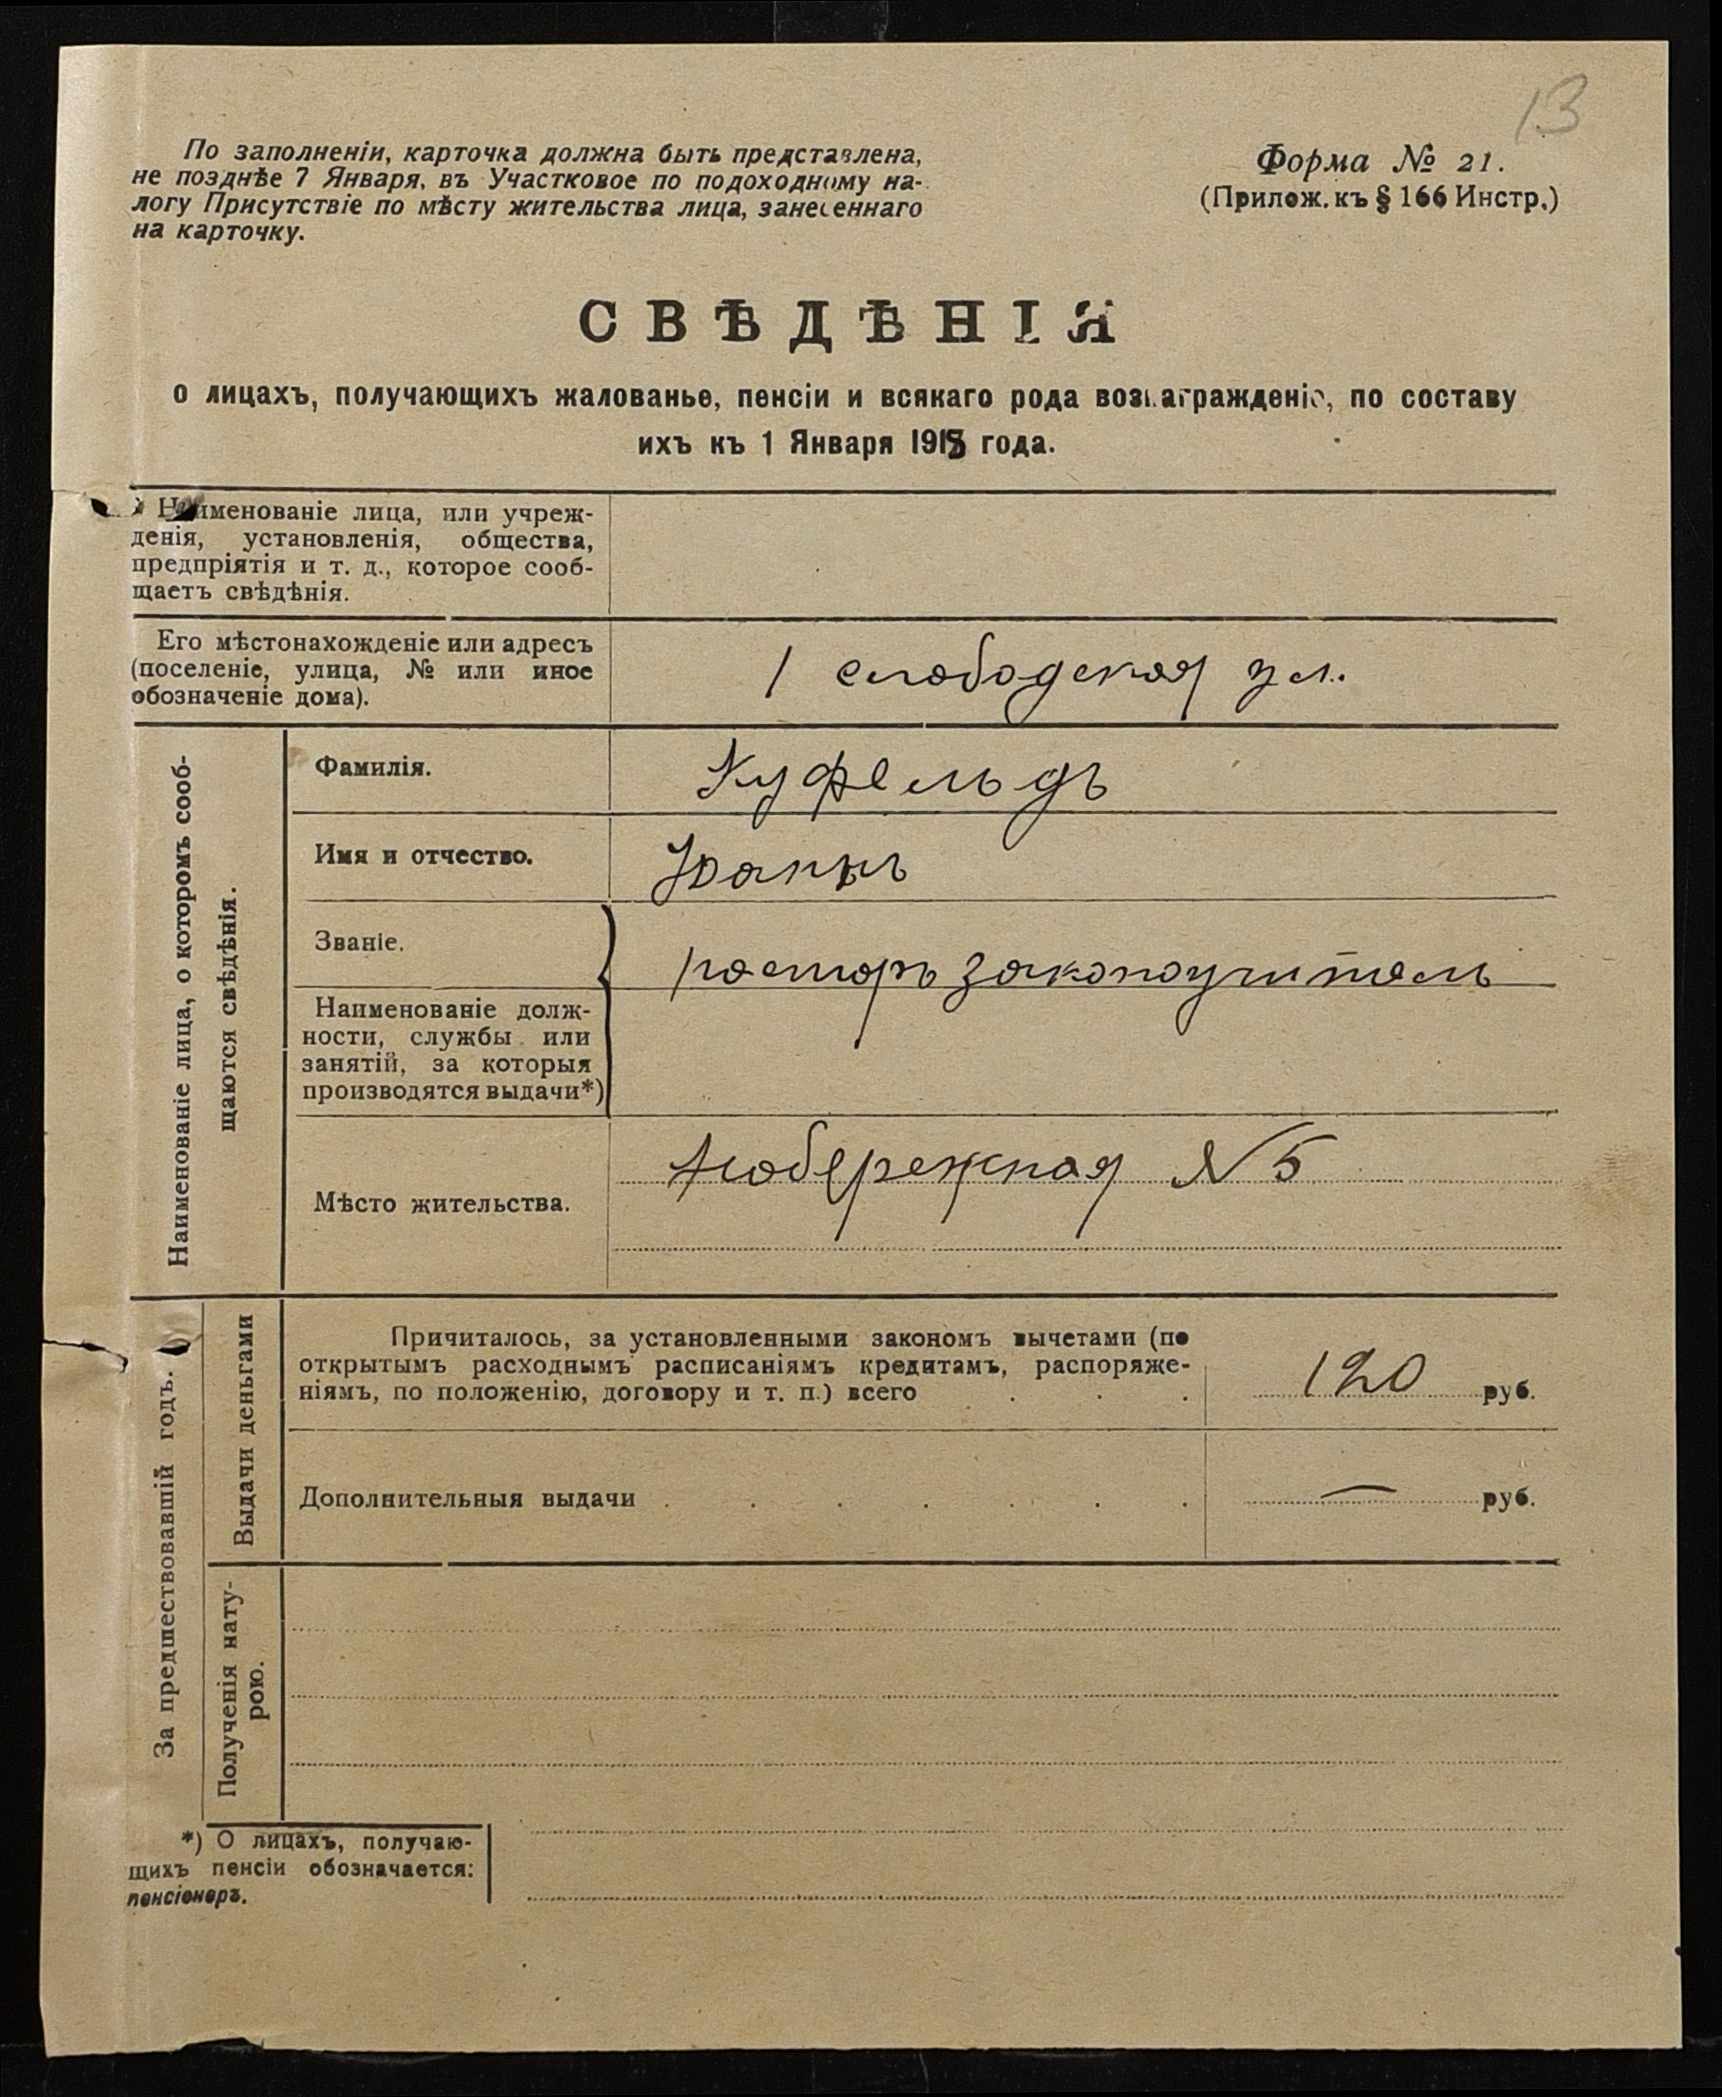 13
По заполненіи, карточка должна быть представлена,
не позднѣе 7 Января, въ Участковое по подоходному на-
логу Присутствіе по мѣсту жительства лица, занесеннаго
на карточку.
Форма № 21.
(Прилож. къ § 166 Инстр.)
СВѢДѢНІЯ
о лицахъ, получающихъ жалованье, пенсіи и всякаго рода вознагражденіе, по составу
ихъ къ 1 Января 1918 года.
Наименованіе лица, или учреж-
денія, установленія, общества,
предпріятія и т. д., которое сооб-
щаетъ свѣдѣнія.
Его мѣстонахожденіе или адресъ
(поселеніе, улица, № или иное
обозначеніе дома).
1 слободская ул.
Наименованіе лица, о которомъ сооб-
щаются свѣдѣнія.
Фамилія.
Куфельдъ
Имя и отчество.
Юаннъ
Званіе.
пасторъ законоучитель
Наименованіе долж-
ности, службы или
занятій, за которыя
производятся выдачи*)
Мѣсто жительства.
Набережная № 5
За предшествовавшій годъ.
Выдачи деньгами
Причиталось, за установленными закономъ вычетами (по
открытымъ расходнымъ расписаніямъ кредитамъ, распоряже-
ніямъ, по положенію, договору и т. п.) всего . . .
120 руб.
Дополнительныя выдачи . . . . . . .
— руб.
Полученія нату-
рою.
*) О лицахъ, получаю-
щихъ пенсіи обозначается:
пенсіонеръ.